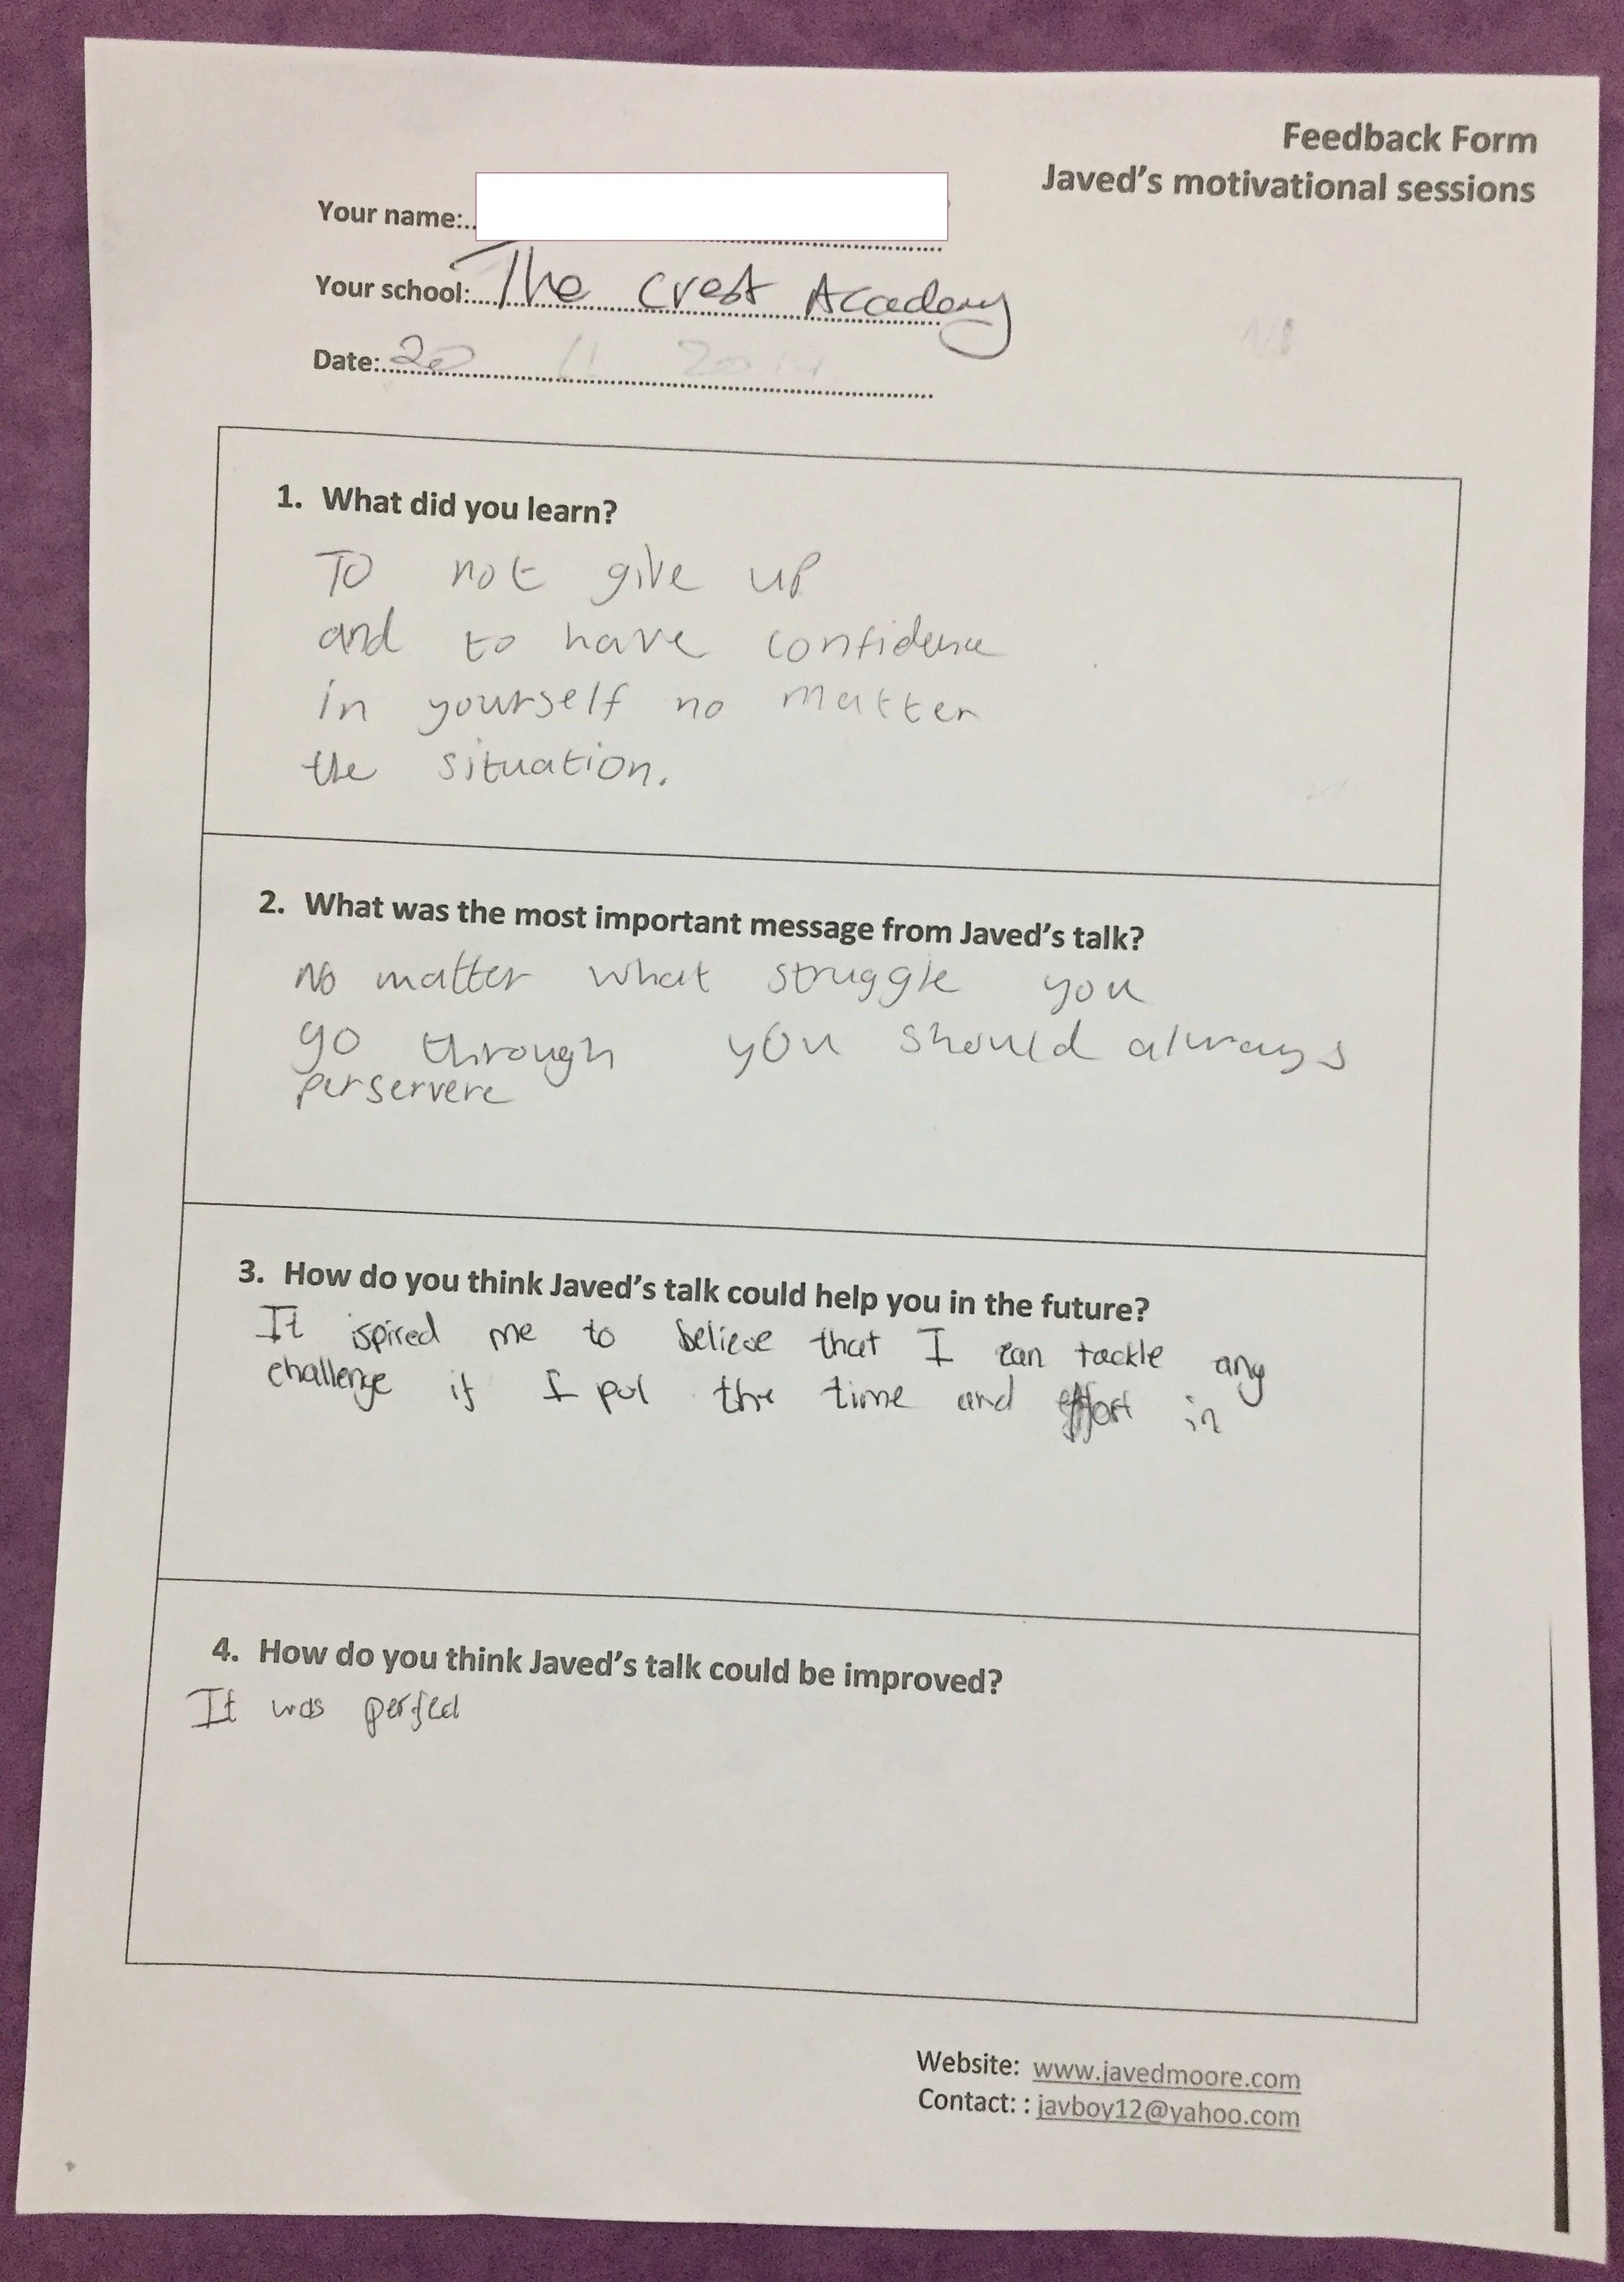 Feedback Form
Javed's motivational sessions
Your name:..
Your school:.... The Crest Accademy
Date:. 20 11
1. What did you learn?
To not give up
and to have confidence
in yourself no matter
the situation.
2. What was the most important message from Javed's talk?
No matter what struggle you
go through you should always
perservere
3. How do you think Javed's talk could help you in the future?
It ispired me to believe that I can tackle any
challenge if I put the time and effort in
4. How do you think Javed's talk could be improved?
It was perfect
Website: www.javedmoore.com
Contact: : javboy12@yahoo.com